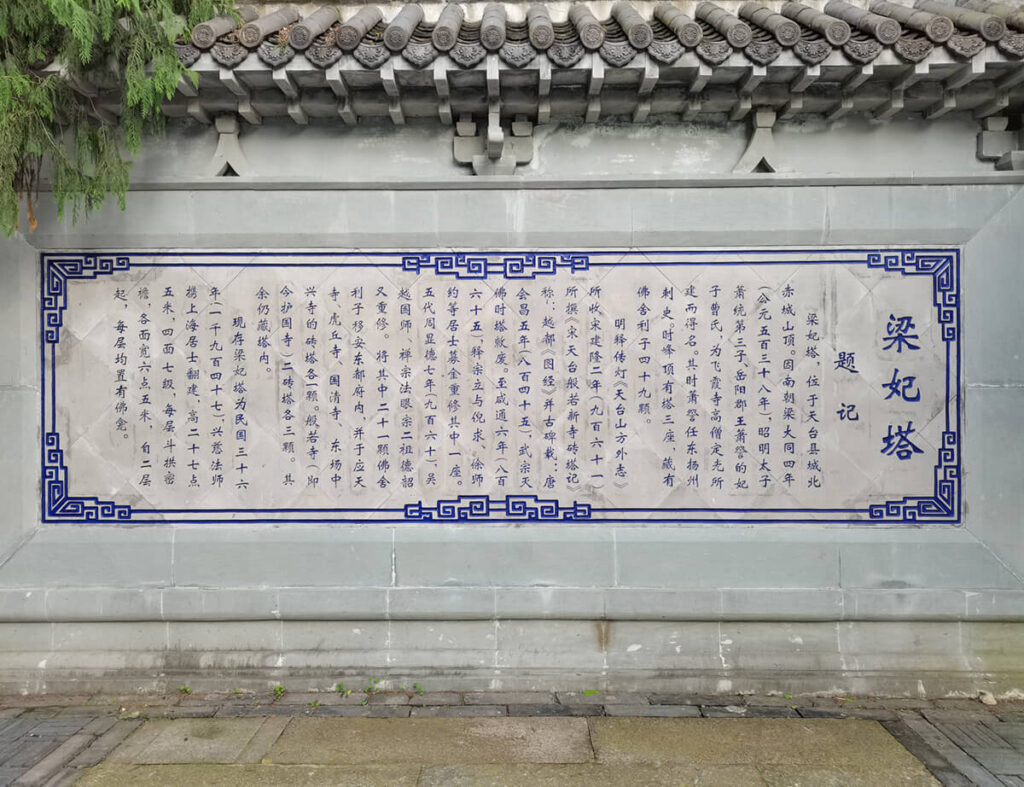 梁妃塔
题记
梁妃塔，位于天台县城北
赤城山顶。因南朝梁大同四年
（公元五百三十八年），昭明太子
萧统第三子、岳阳郡王萧詧的妃
子曹氏，为飞霞寺高僧定光所
建而得名。其时萧詧任东扬州
刺史。时峰顶有塔三座，藏有
佛舍利子四十九颗。
明释传灯《天台山方外志》
所收宋建隆二年（九百六十一
所撰《宋天台般若新寺砖塔记》
称：越都《图经》并古碑载：唐
会昌五年（八百四十五），武宗灭
佛时塔欹废。至咸通六年（八百
六十五），释宗立与倪求、徐师
约等居士募金重修其中一座。
五代周显德七年（九百六十），吴
越国师、禅宗法眼宗二祖德韶
又重修。将其中二十一颗佛舍
利子移安东都府内，并于应天
寺、虎丘寺、国清寺、东场中
兴寺的砖塔各一颗。般若寺（即
今护国寺）二砖塔各三颗。其
余仍藏塔内。
现存梁妃塔为民国三十六
年（一千九百四十七）兴慈法师
携上海居士翻建，高二十七点
五米，四面七级，每层斗拱密
檐，各面宽六点五米，自二层
起，每层均置有佛龛。